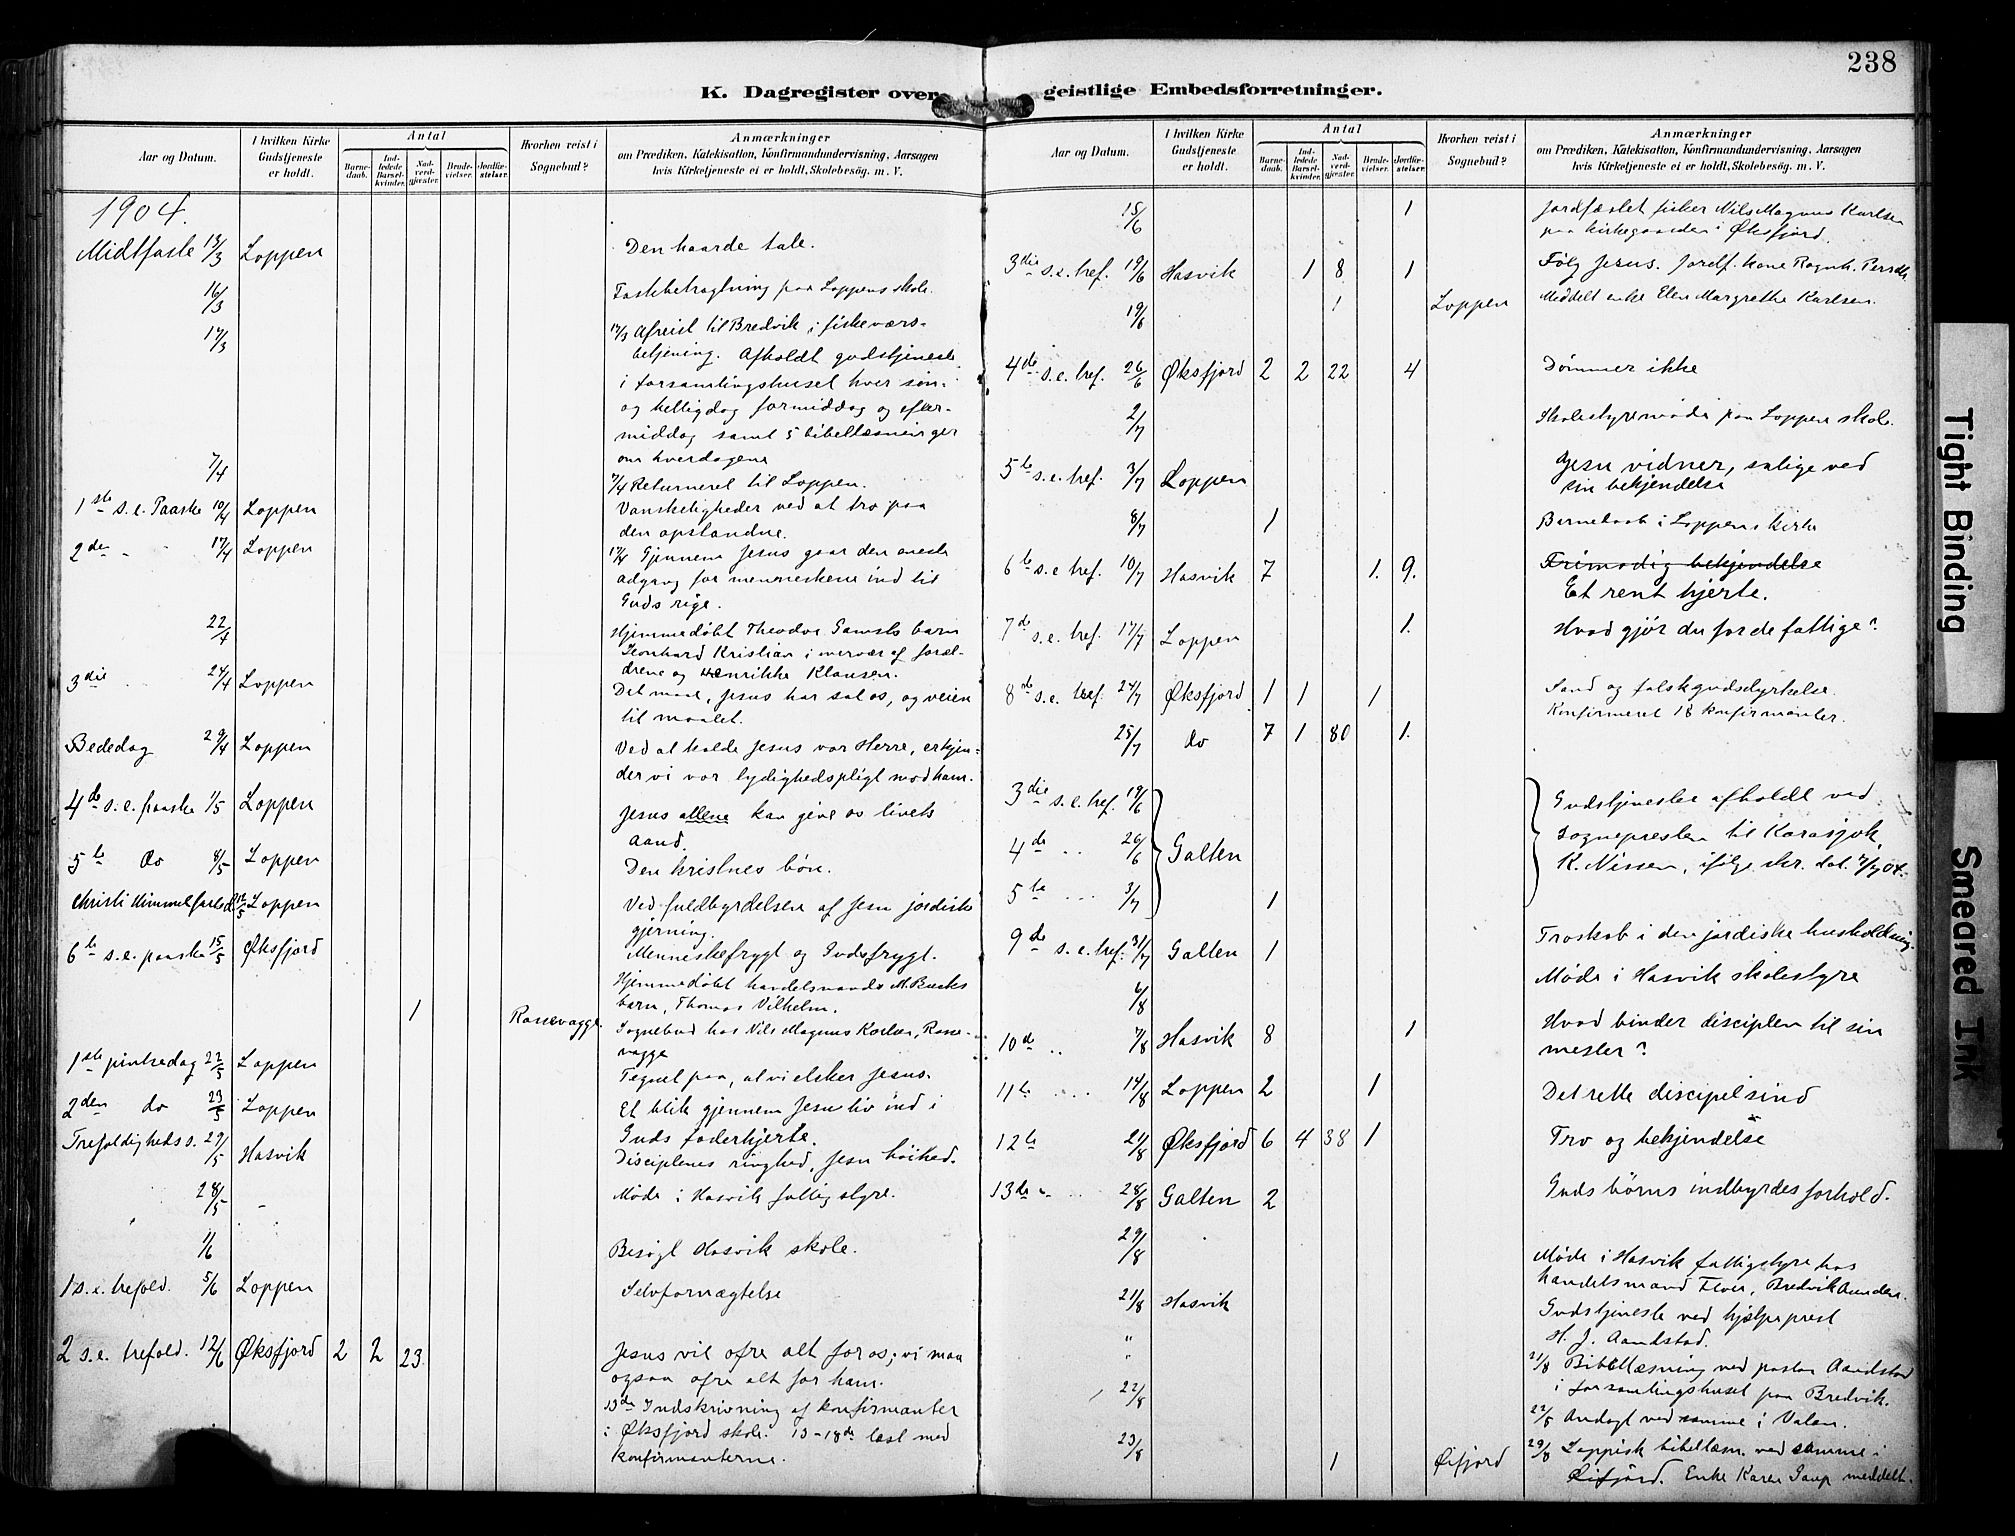 238
K. Dagregister over geistlige Embedsforretninger.
Aar og Datum.
I hvilken Kirke Gudstjeneste er holdt.
Antal
Barnedaab.
Indledede Barselkvinder.
Nadverdgjæster.
Brudevielser.
Jordfæstelser.
Hvorhen reist i Sognebud?
Anmærkninger
om Prædiken, Katekisation, Konfirmandundervisning, Aarsagen
hvis Kirketjeneste ei er holdt, Skolebesøg. m. V.
1904.
Midtfaste 13/3 Loppen Den haarde tale.
16/3 Fastebetragtning paa Loppens skole.
17/3 17/3 Afreist til Bredvik i fiskeværs-
betjening. Afholdt gudstjeneste
i forsamlingshuset hver søn-
og helligdag formiddag og efter-
middag samt 5 bibellæsninger
om hverdagene
7/4 7/4 Returneret til Loppen.
1ste s.e. Paaske 10/4 Loppen Vanskeligheder ved at tro paa
den opstandne.
2den - - 17/4 Loppen 17/4 Gjennem Jesus gaar den eneste
adgang for menneskene ind til
Guds rige.
22/4 Hjemmedøbt Theodor Gamsts barn
Leonhard Kristian i overvær af foræl-
drene og Henrikke Klausen.
3die 24/4 Loppen Det maal, Jesus har sat os, og veien
til maalet.
Bededag 29/4 Loppen Ved at kalde Jesus vor Herre, erkjen-
der vi vor lydighedspligt mod ham.
4de s.e. paaske 1/5 Loppen Jesus allene kan give os livets
Aand.
5te do 8/5 Loppen Den kristnes bøn.
Christi Himmelfartsd. 12/5 Loppen Ved fuldbyrdelsen af Jesu jordiske
gjerning.
6te s.e. paaske 15/5 Øksfjord Menneskefrygt og Gudsfrygt.
Hjemmedøbt handelsmand M. Bucks
barn, Thomas Vilhelm.
1 Rossevagge Sognebud hos Nils Magnus Karlsen, Rosse-
vagge
1ste pintsedag 22/5 Loppen Tegnet paa, at vi elsker Jesus.
2den do 23/5 Loppen Et blik gjennem Jesu liv ind i
Guds faderhjerte.
Trefoldigheds s. 29/5 Hasvik Disciplenes ringhed, Jesu høihed.
28/5 - Møde i Hasvik fattigstyre.
1/6 Besøgt Hasvik skole.
1 s.e. trefold. 5/6 Loppen Selvfornægtelse
2 s.e. trefold. 12/6 Øksfjord 2 2 23 Jesus vil ofre alt for os; vi maa
ogsaa ofre alt for ham.
13de Indskrivning af konfirmanter
i Øksfjord skole. 13-18de læst med
konfirmanterne.
Aar og Datum.
I hvilken Kirke Gudstjeneste er holdt.
Antal
Barnedaab.
Indledede Barselkvinder.
Nadverdgjæster.
Brudevielser.
Jordfæstelser.
Hvorhen reist i Sognebud?
Anmærkninger
om Prædiken, Katekisation, Konfirmandundervisning, Aarsagen
hvis Kirketjeneste ei er holdt, Skolebesøg. m. V.
15/6 1 Jordfæstet fisker Nils Magnus Karlsen
paa kirkegaarden i Øksfjord.
3die s.e. tref. 19/6 Hasvik 1 8 1 Følg Jesus. Jordf. kone Ragnh. Persdtr.
19/6 1 Loppen Meddelt enke Elen Margrethe Karlsen.
4de s.e. tref. 26/6 Øksfjord 2 2 22 4 Dømmer ikke
2/7 Skolestyremøde paa Loppen skole.
5te s.e. tref. 3/7 Loppen Jesu vidner, salige ved
sin bekjendelse
8/7 1 Barnedaab i Loppens kirke
6te s.e. tref. 10/7 Hasvik 7 1. 9. Frimodig bekjendelse
Et rent hjerte.
7de s.e. tref. 17/7 Loppen 1. Hvad gjør du for de fattige?
8de s.e. tref. 24/7 Øksfjord 1 1 1 Sand og falsk gudsdyrkelse.
Konfirmeret 18 konfirmanter.
25/7 do 7 1 80 1.
3die s.e. tref. 19/6 Gudstjenester afholdt ved
4de - - 26/6 Galten sognepresten til Karasjok,
K. Nissen, ifølge skr. dat. 4/7 04.
5te - - 3/7 1
9de s.e. tref. 31/7 Galten 1 Troskab i den jordiske husholdning.
6/8 Møde i Hasvik skolestyre
10de - - 7/8 Hasvik 8 1 Hvad binder disciplen til sin
mester?
11te - - 14/8 Loppen 2 1 Det rette discipelsind
12te 21/8 Øksfjord 6 4 38 1 Tro og bekjendelse
13de - - 28/8 Galten 2 Guds børns indbyrdes forhold.
29/8 Møde i Hasvik fattigstyre hos
handelsmand Floer, Bredvik
21/8 Hasvik Gudstjeneste ved hjælpeprest
" H. J. Aandstad.
" 21/8 Bibellæsning ved pastor Aandstad
i forsamlingshuset paa Bredvik.
22/8 22/8 Andagt ved samme i Valan.
23/8 1 Øifjord 23/8 Lappisk bibellæsn. ved samme i
Øifjord. Enke Karen Gaup meddelt.
Tight Binding
Smeared Ink